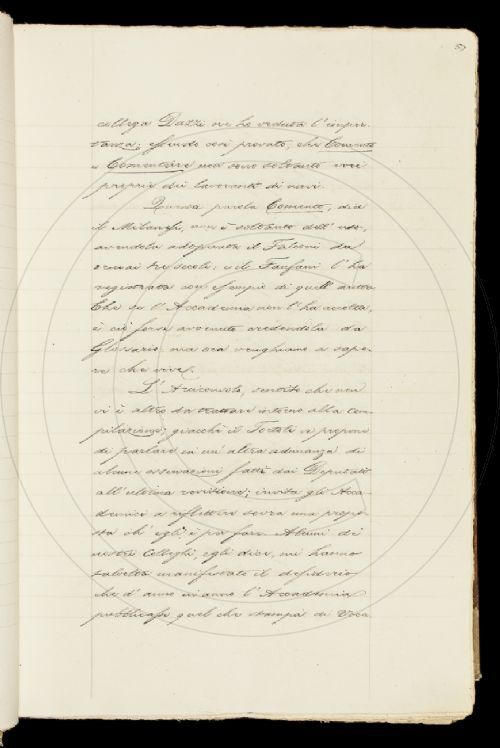 57
collega Dazzi ne ha veduta l'impor-
tanza; essendo così provato, che Comento
e Comentare non sono soltanto voci
proprie dei lavoranti di navi.
Questa parola Comento, dice
il Milanesi, non è soltanto dell'uso,
avendola adoperata il Falconi da
ormai tre secoli: e il Fanfani l'ha
registrata con esempio di quell'autore
Che se l'Accademia non l'ha accolta,
è ciò forse avvenuto credendola da
Glossario; ma ora venghiamo a sape-
re che vive.
L'Arciconsolo, sentito che non
vi è altro da trattare intorno alla com-
pilazione; giacchè il Tortoli si propone
di parlare in un'altra adunanza di
alcune osservazioni fatte dai Deputati
all'ultima revisione; invita gli Acca-
demici a riflettere sopra una propo-
sta ch'egli è per fare. Alcuni dei
nostri Colleghi, egli dice, mi hanno
talvolta manifestato il desiderio
che d'anno in anno l'Accademia
pubblicasse quel che stampa di Voca